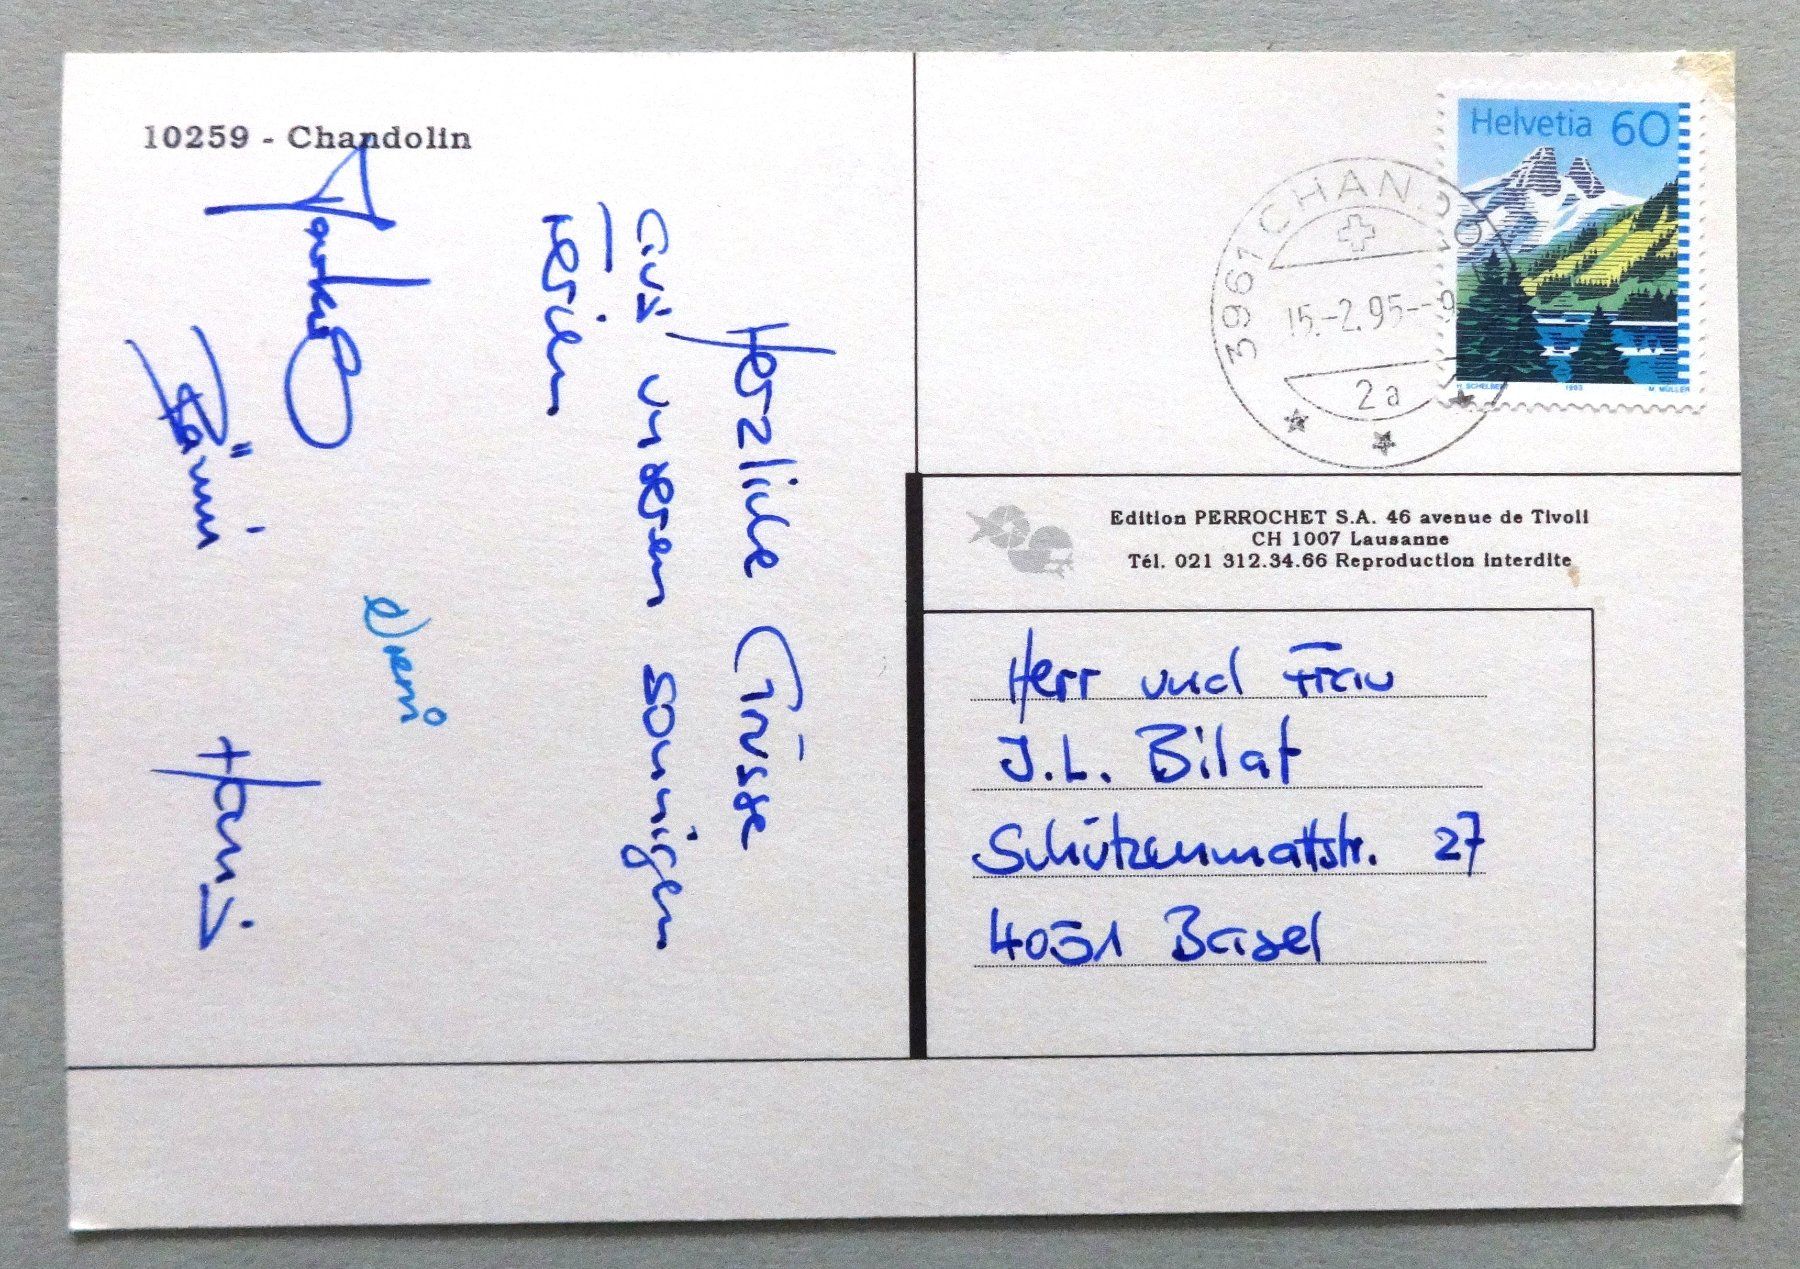 10259 - Chandolin
Herzliche Grüsse
aus unseren sonnigen
Ferien
Hansi
Helvetia 60
H. SCHELBERT 1993 M. MÜLLER
3961 CHANDOL
15.-2.95--9
2a
Edition PERROCHET S.A. 46 avenue de Tivoli
CH 1007 Lausanne
Tél. 021 312.34.66 Reproduction interdite
Herr und Frau
J.L. Bilat
Schützenmattstr. 27
4051 Basel